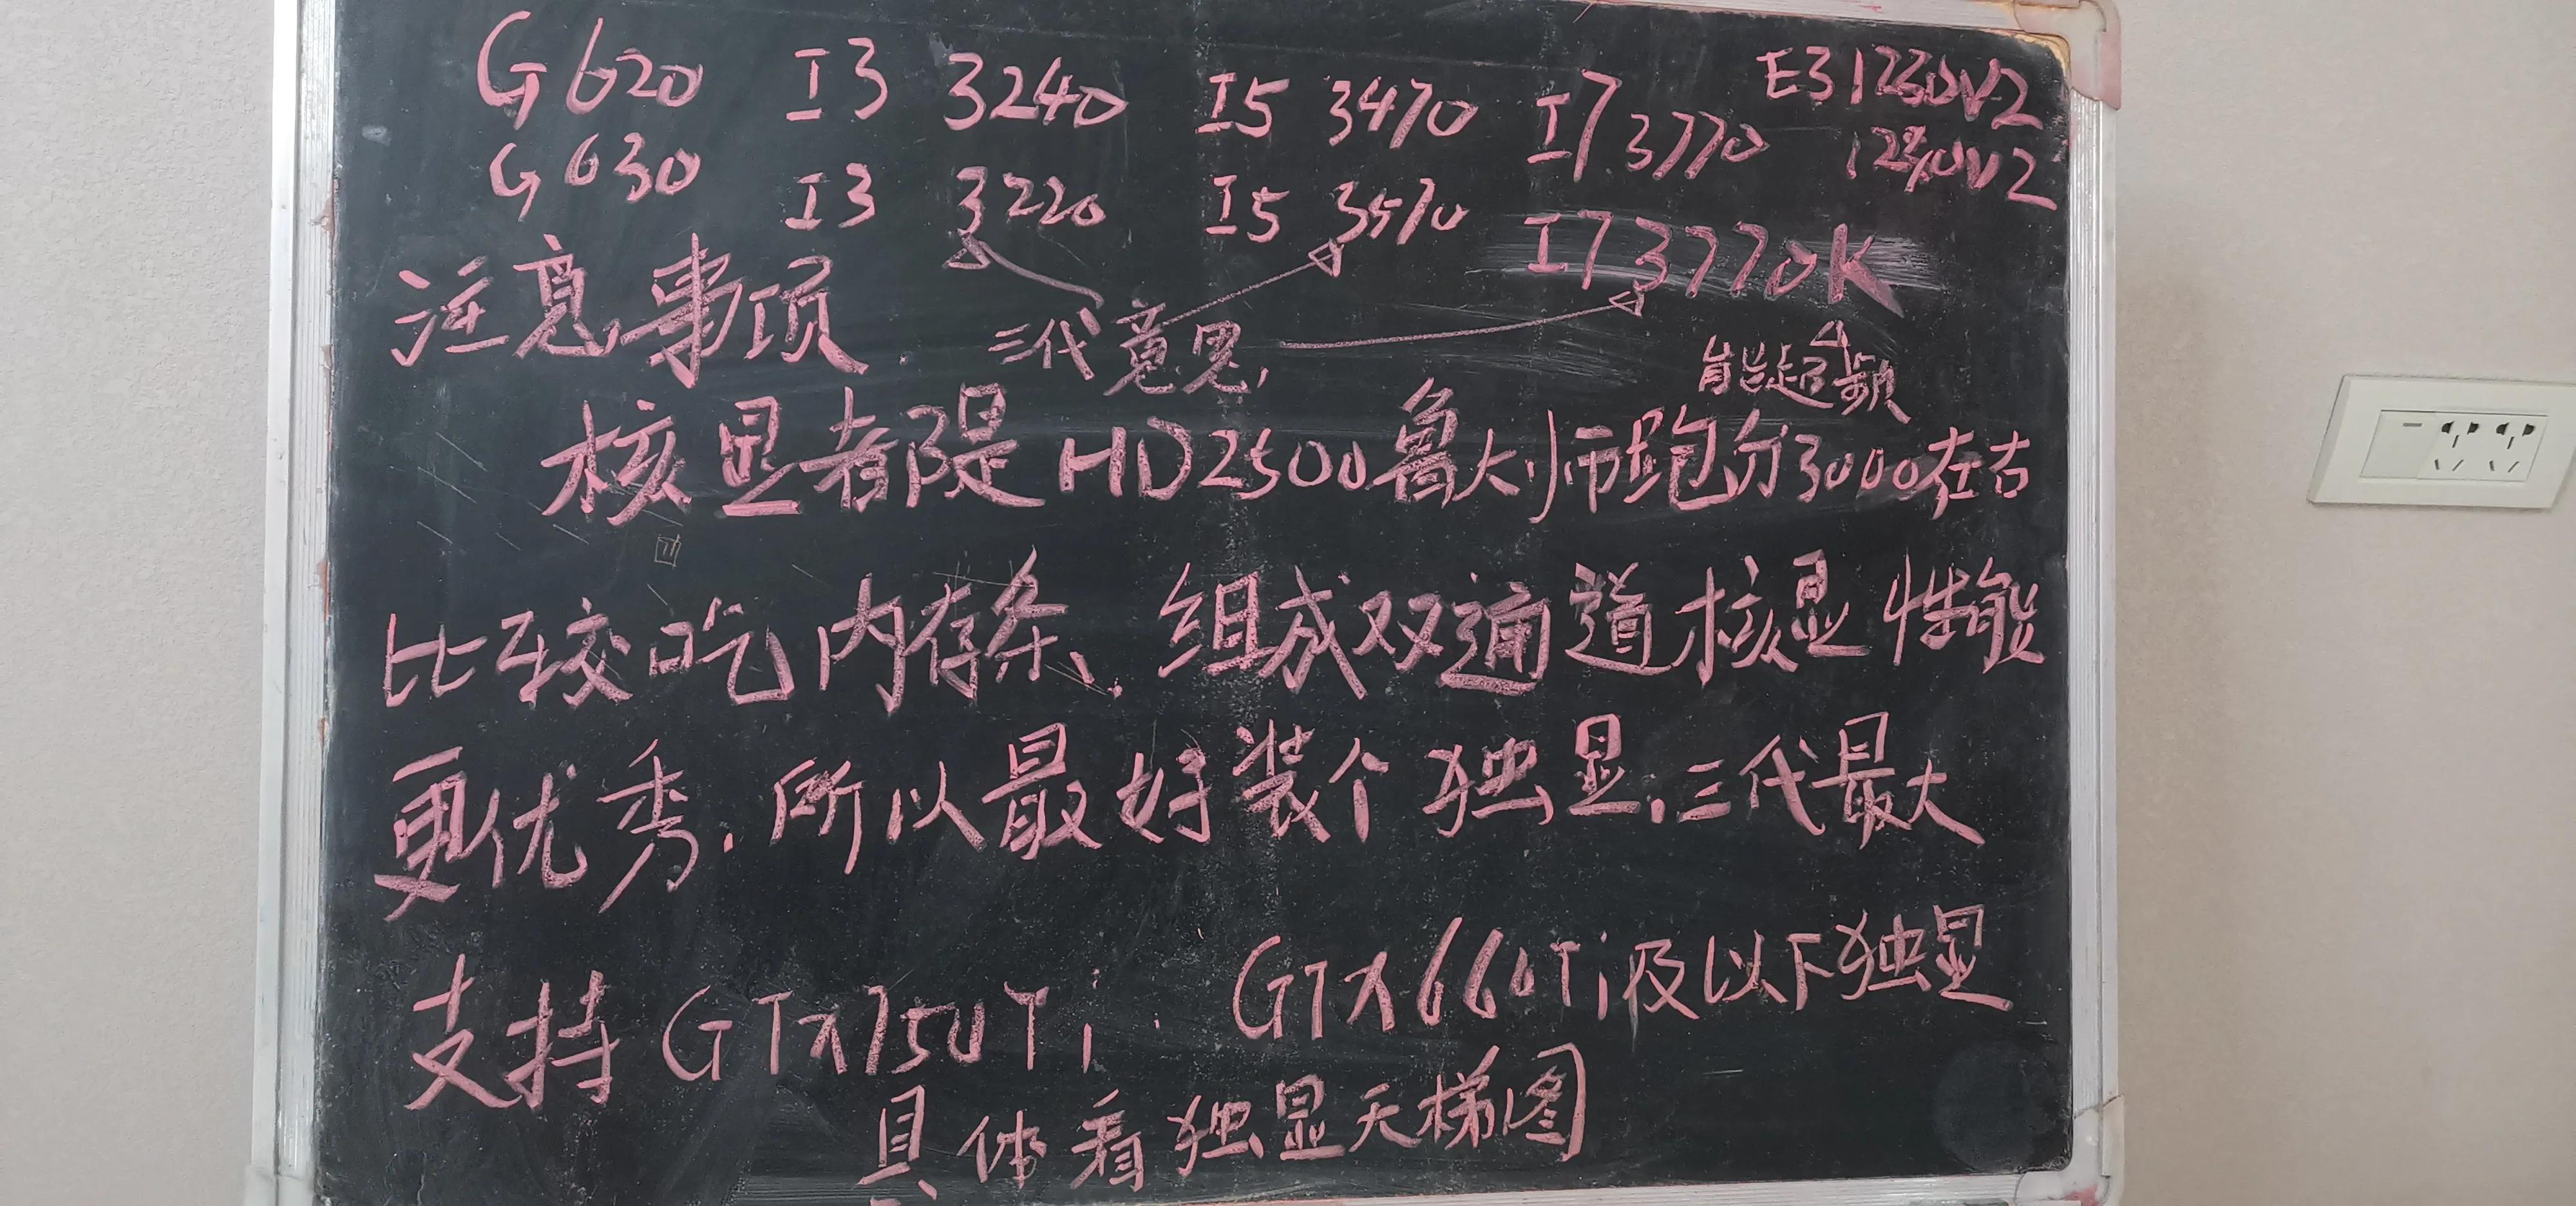 G620 I3 3240 I5 3470 I7 3770 E3 1230V2
G630 I3 3220 I5 3570 I7 3770K
注意事项 三代意思 能超频
核显都是HD2500鲁大师跑分3000左右
比较吃内存条、组成双通道核显性能
更优秀.所以最好装个独显.三代最大
支持GTX750Ti GTX660Ti及以下独显
具体看独显天梯图